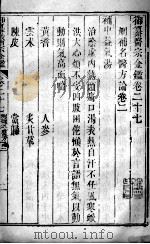 御纂醫宗金鑑卷二十七
刪補名醫方論卷二
補中益氣湯
治陰虛内熱頭痛口渴表熱自汗不任風寒脈
洪大心煩不安四肢困倦懶於言語無氣以動
動則氣高而喘
黃耆 人參
雲朮 炙甘草
陳皮 當歸